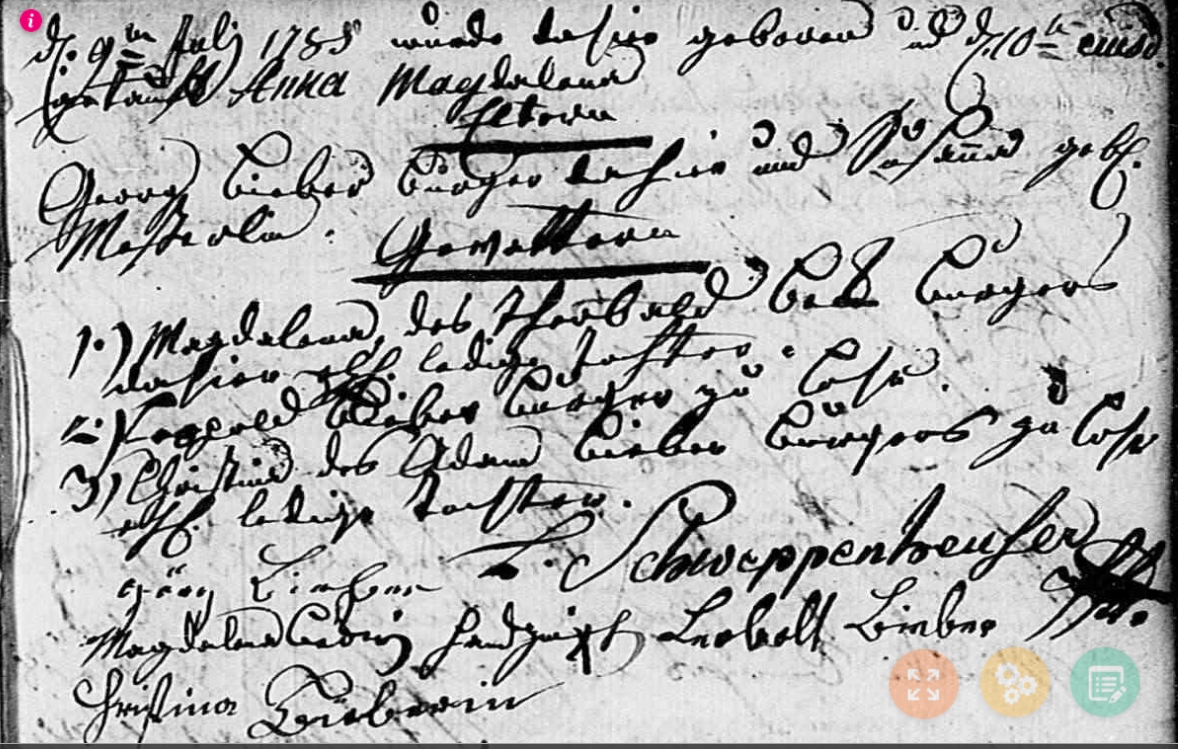 d. 9ten Julj 1785 wurde dahier geboren und d. 10te eiusd.
getauft Anna Magdalena
Eltern
Georg Bieber Burger dahier und Susanna gebh.
Gevattern
1.) Magdalena, des Theobald Beck Burgers
dahier ehl. ledige Tochter.
2.) Leopold Bieber Burger zu Lohr.
3.) Christina des Adam Bieber Burgers zu Lohr
ehl. ledige Tochter.
Schweppenheuser
Görg Bieber
Magdalena handzeich Leobolt Bieber
Christina Bieberin